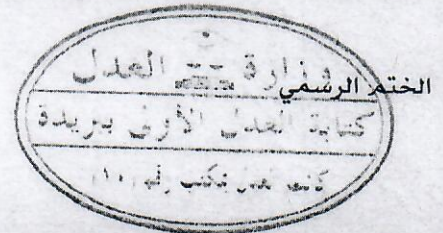 الختم الرسمي
وزارة العدل
كتابة العدل الأولى ببريدة
كاتب عدل مكتب رقم (١٠)